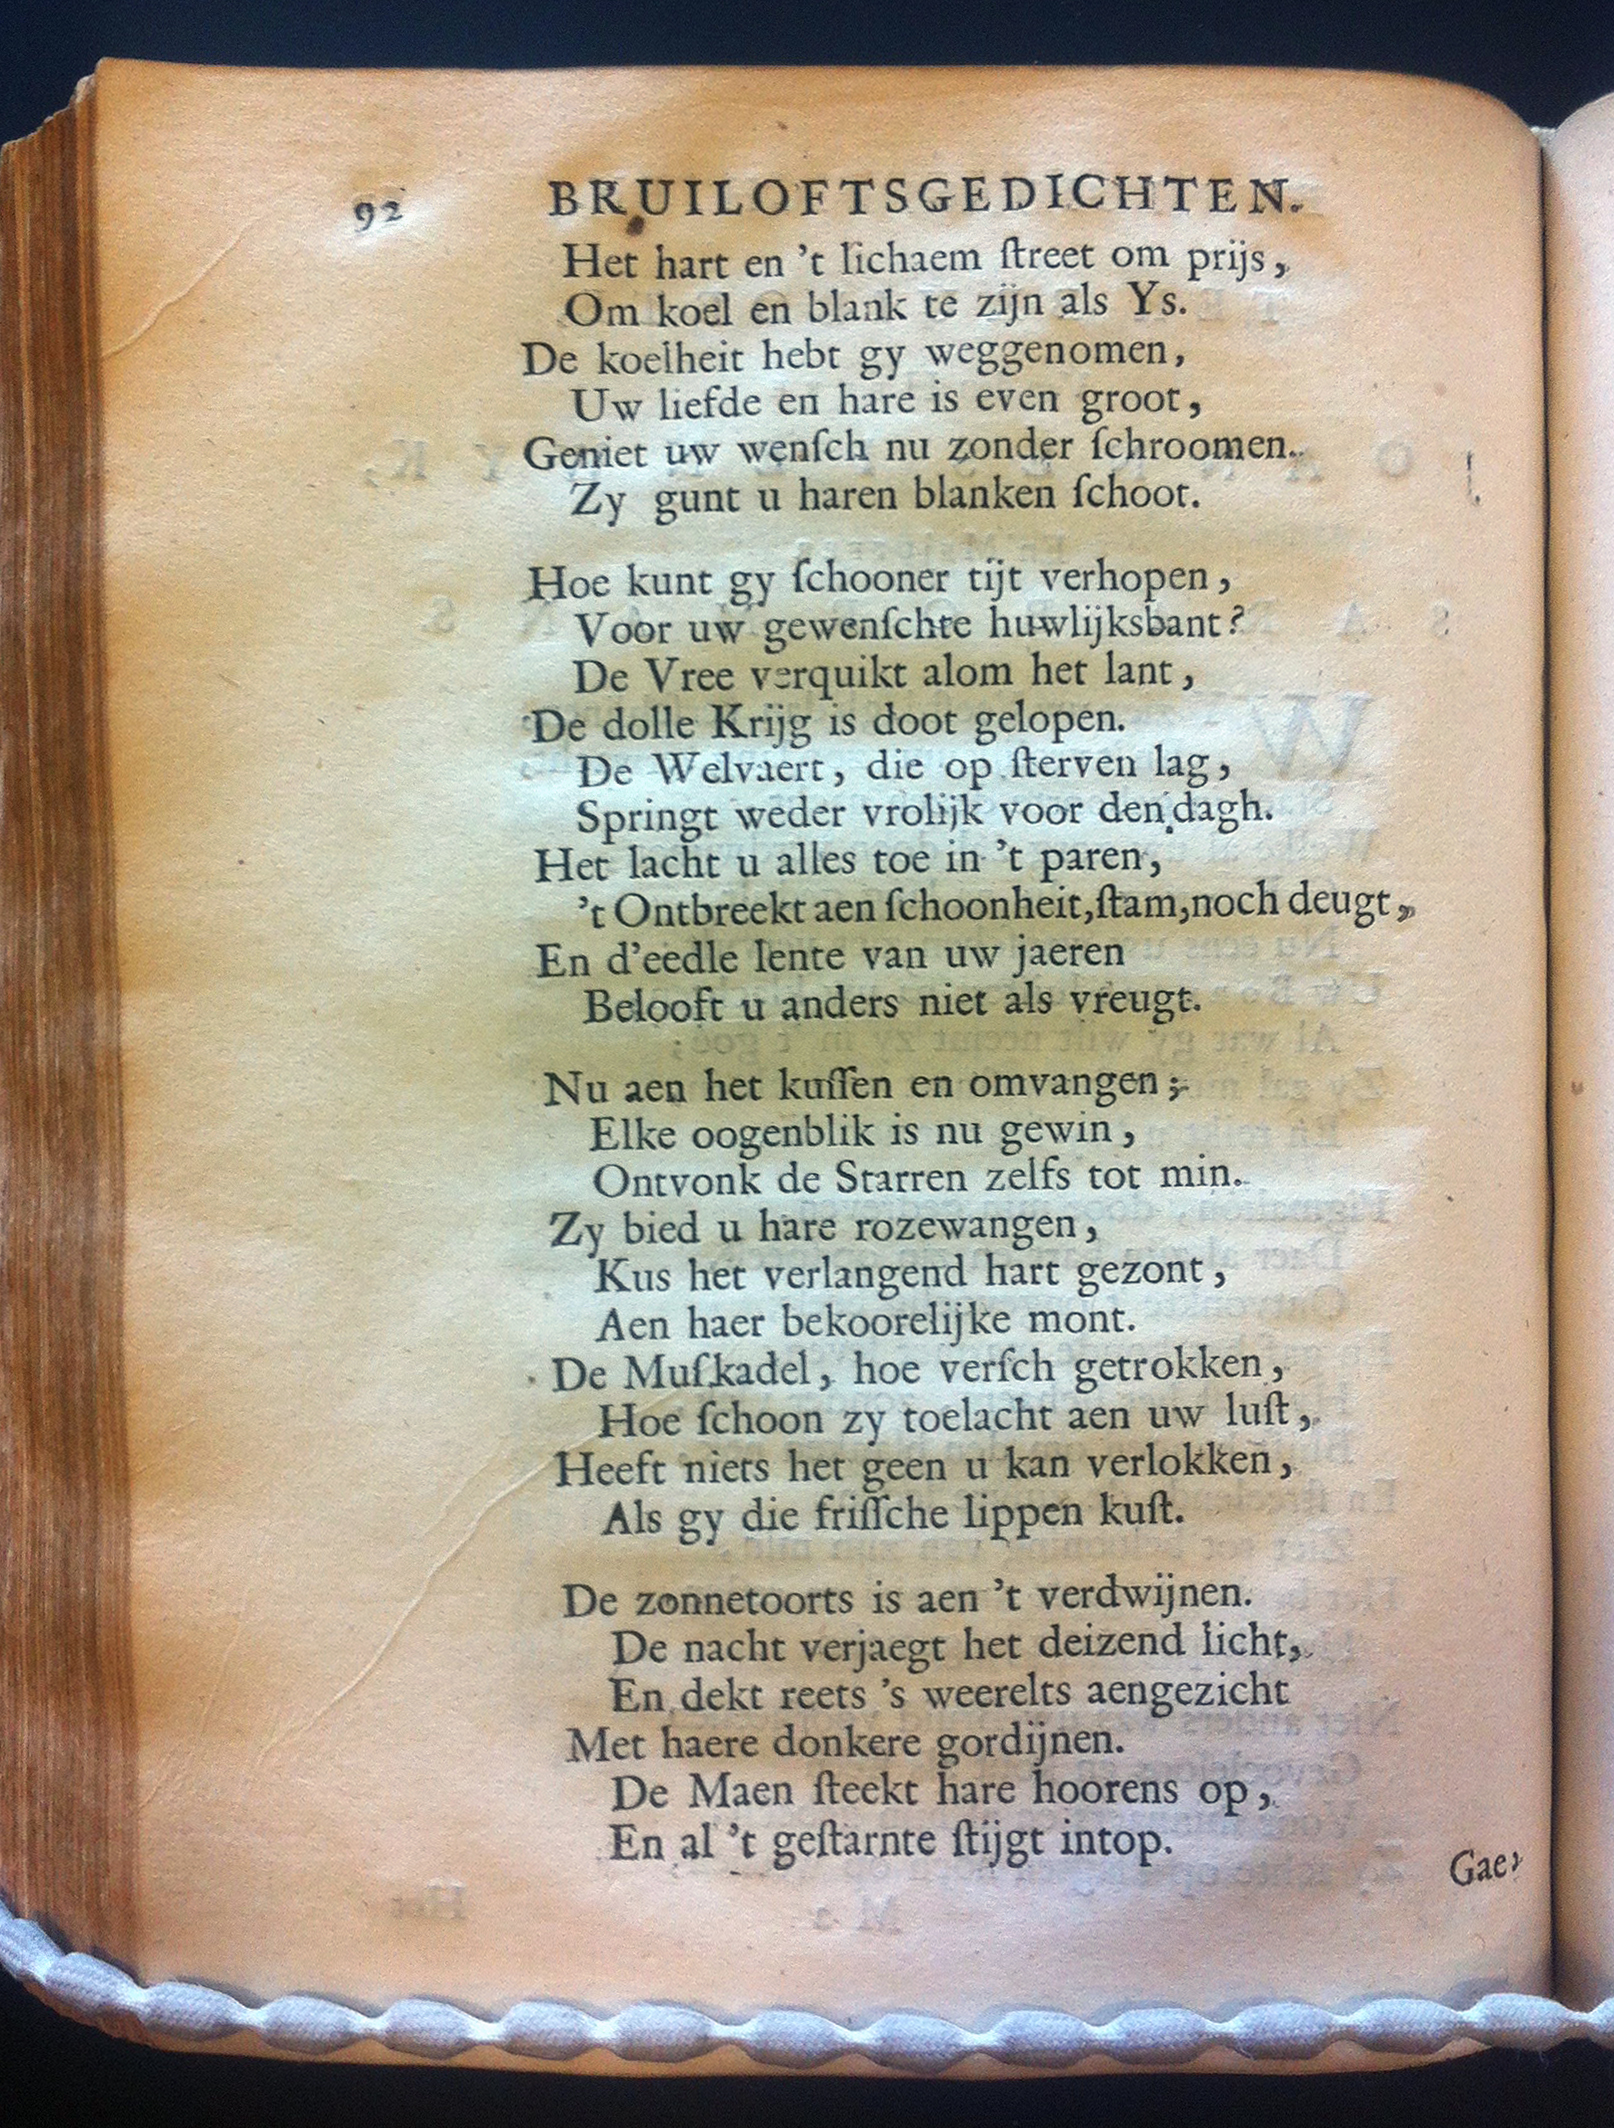 92 BRUILOFTSGEDICHTEN.
Het hart en 't lichaem ſtreet om prijs,
Om koel en blank te zijn als Ys.
De koelheit hebt gy weggenomen,
Uw liefde en hare is even groot,
Geniet uw wenſch nu zonder ſchroomen.
Zy gunt u haren blanken ſchoot.
Hoe kunt gy ſchooner tijt verhopen,
Voor uw gewenſchte huwlijksbant?
De Vree verquikt alom het lant,
De dolle Krijg is doot gelopen.
De Welvaert, die op ſterven lag,
Springt weder vrolijk voor den dagh.
Het lacht u alles toe in 't paren,
't Ontbreekt aen ſchoonheit, ſtam, noch deugt,
En d'eedle lente van uw jaeren
Belooft u anders niet als vreugt.
Nu aen het kuſſen en omvangen;
Elke oogenblik is nu gewin,
Ontvonk de Starren zelfs tot min.
Zy bied u hare rozewangen,
Kus het verlangend hart gezont,
Aen haer bekoorelijke mont.
De Muſkadel, hoe verſch getrokken,
Hoe ſchoon zy toelacht aen uw luſt,
Heeft niets het geen u kan verlokken,
Als gy die friſſche lippen kuſt.
De zonnetoorts is aen 't verdwijnen.
De nacht verjaegt het deizend licht,
En dekt reets 's weerelts aengezicht
Met haere donkere gordijnen.
De Maen ſteekt hare hoorens op,
En al 't geſtarnte ſtijgt intop.
Gae,